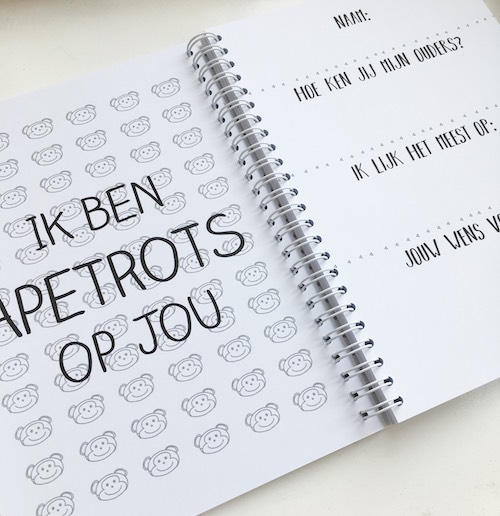 IK BEN
APETROTS
OP JOU
NAAM:
HOE KEN JIJ MIJN OUDERS?
IK LIJK HET MEEST OP:
JOUW WENS V